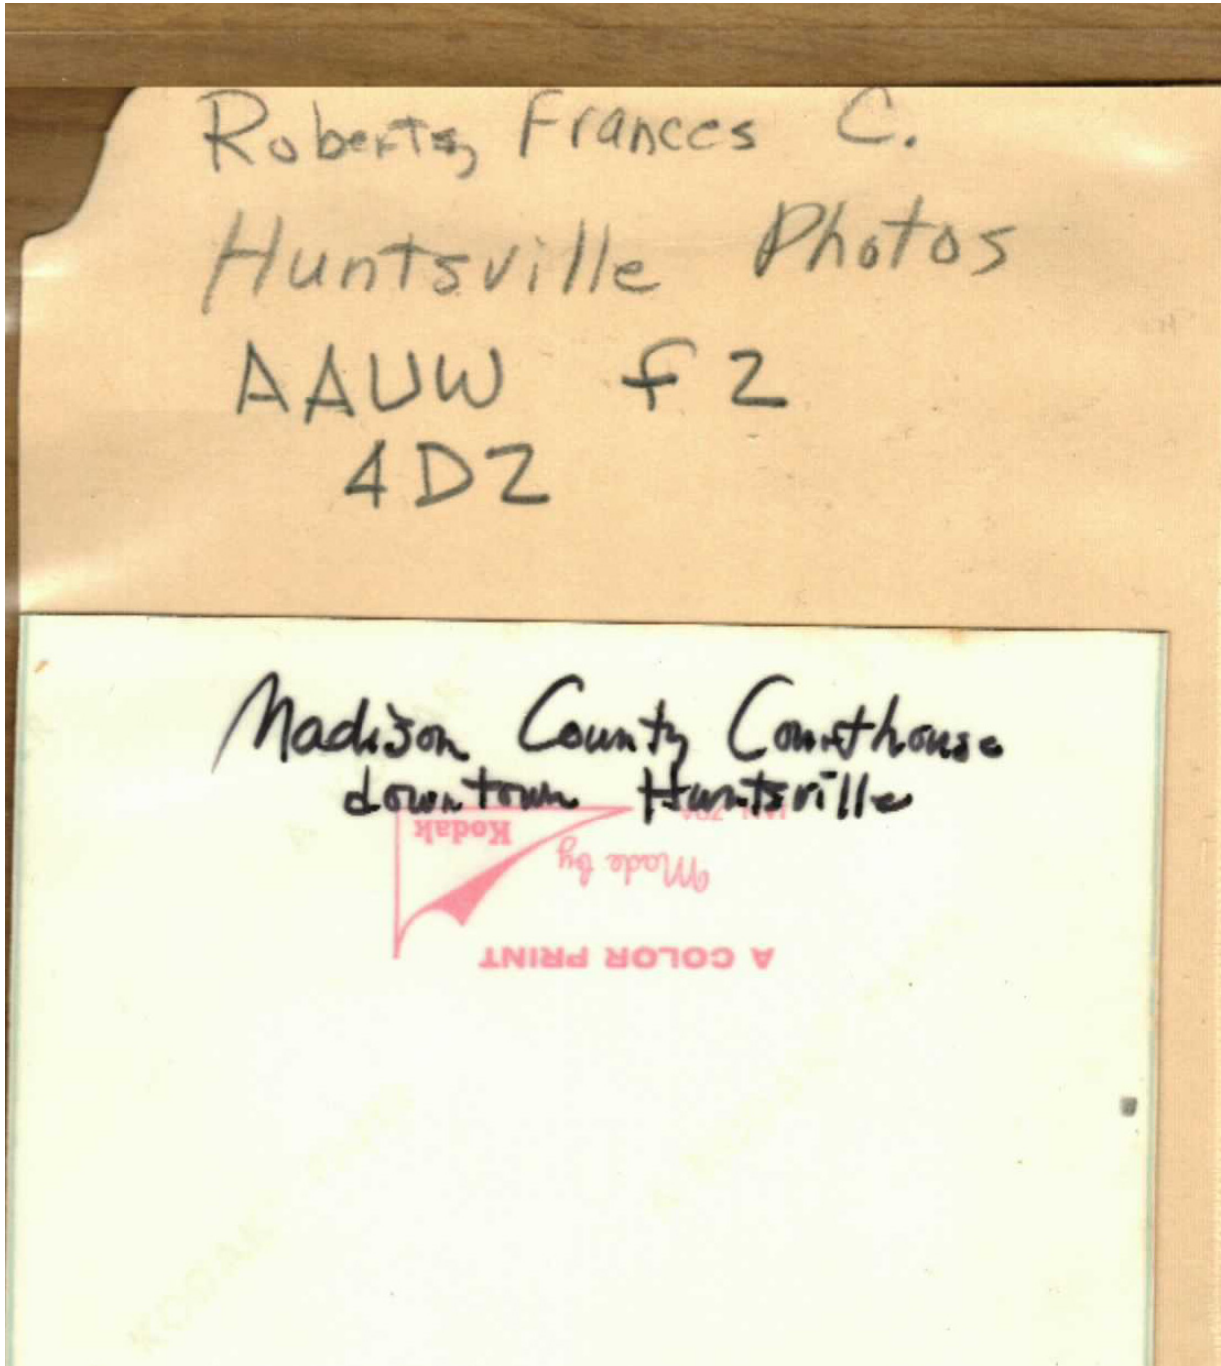 Roberts, Frances C.
Huntsville Photos
AAUW f 2
4D2
Madison County Courthouse
downtown Huntsville
A COLOR PRINT
Made by
Kodak
KODAK